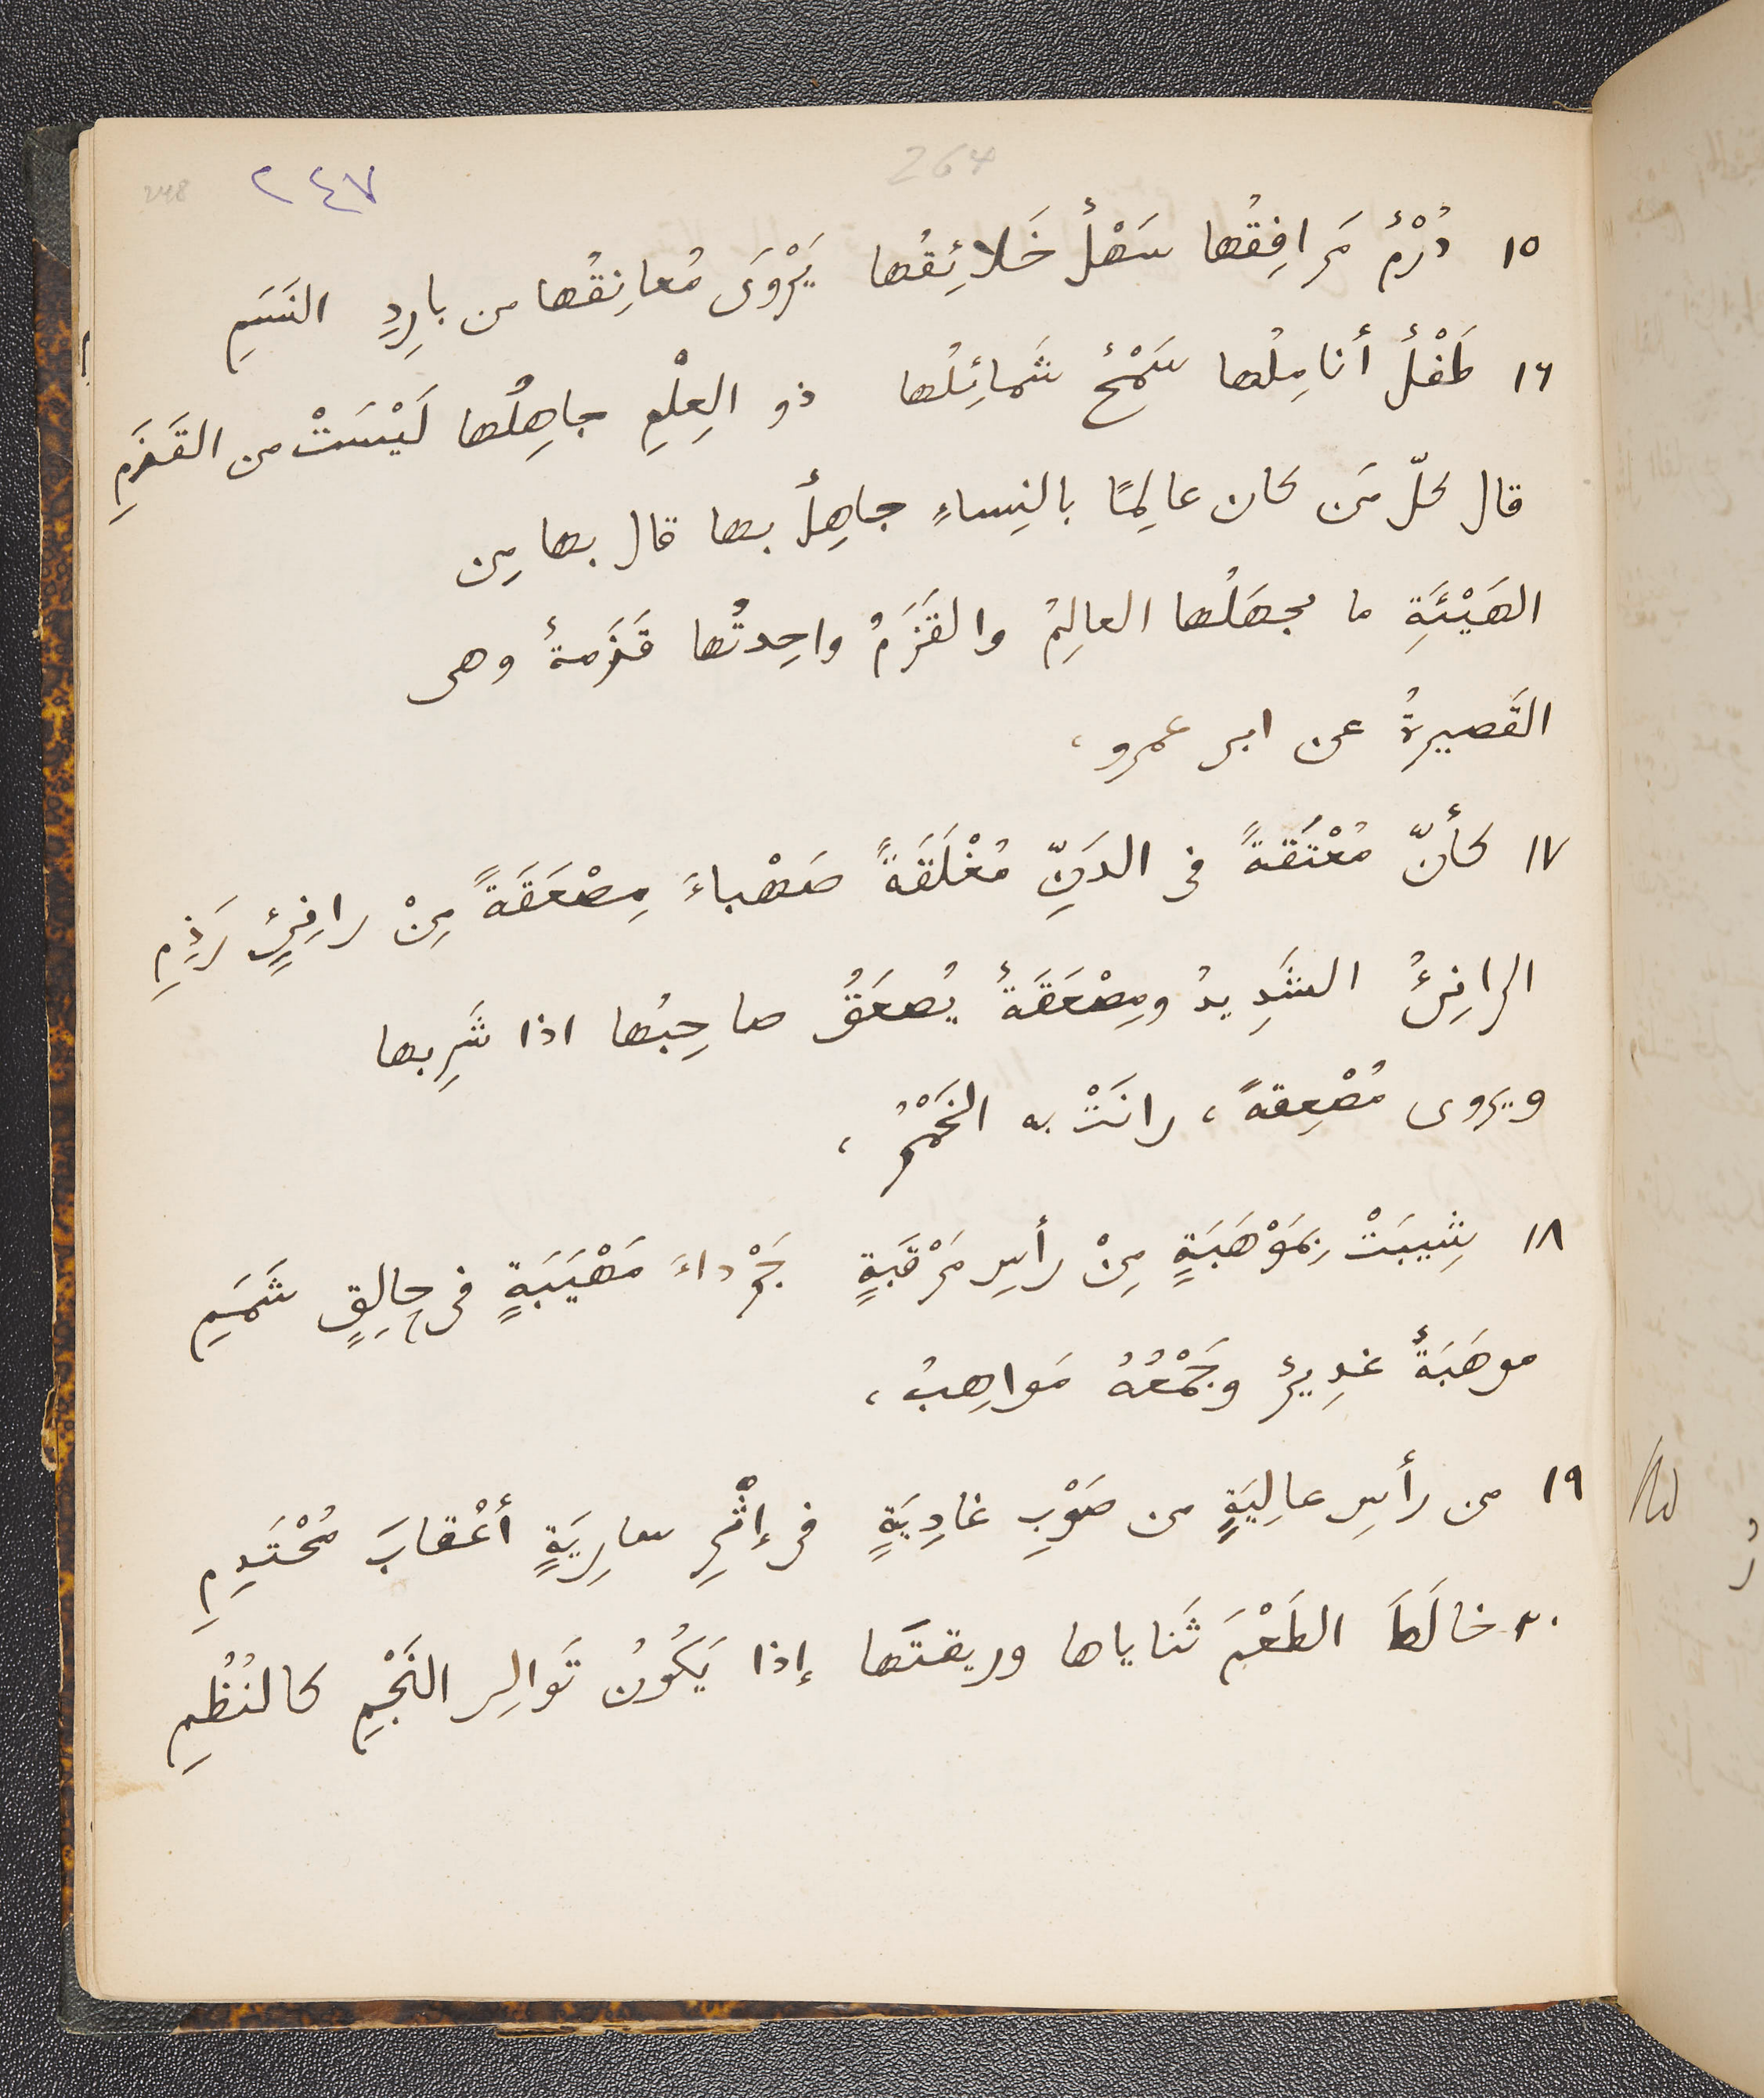 264
٢٤٧
248
١٥ دُرْمٌ مَرافِقُها سَهْلٌ خَلائِقُها يَرْوَى مُعانِقُها من بارِدِ النَسَمِ
١٦ طَفْلٌ أنامِلُها سَمْحٌ شَمائِلُها ذو العِلْمِ جاهِلُها لَيْسَتْ من القَزَمِ
قال كلّ مَن كان عالِمًا بالنِساءِ جاهِلٌ بها قال بها مِن
الهَيْئَةِ ما يجهَلُها العالِمُ والقَزَمُ واحِدتُها قَزَمةٌ وهى
القَصيرةُ عن ابى عمرو،
١٧ كأنّ مُعْتَقةً فى الدَنِّ مُغْلَقَةً صَهْباءَ مِصْعَقَةً مِنْ رانِئٍ رَذِمِ
الرانِئُ الشَدِيدُ ومِصْعَقَةٌ يُصعَقُ صاحِبُها اذا شَرِبها
ويروى مُصْعِقةً، رانَتْ به الخَمْرُ،
١٨ شِيبَتْ بِمَوْهَبَةٍ مِنْ رأسِ مَرْقَبَةٍ جَرْداءَ مَهْيَبَةٍ فى حالِقٍ شَمَمِ
موهَبَةٌ غدِيرٌ وجَمْعُهُ مَواهِبُ،
١٩ من رأسِ عالِيَةٍ من صَوْبِ غادِيَةٍ فى إثْرِ سارِيَةٍ أعْقابَ مُحْتَدِمِ
٢٠ خالَطَ الطَعْمَ ثَناياها وريقتَها إذا يَكُونُ تَوالِى النَجْمِ كالنُظُمِ